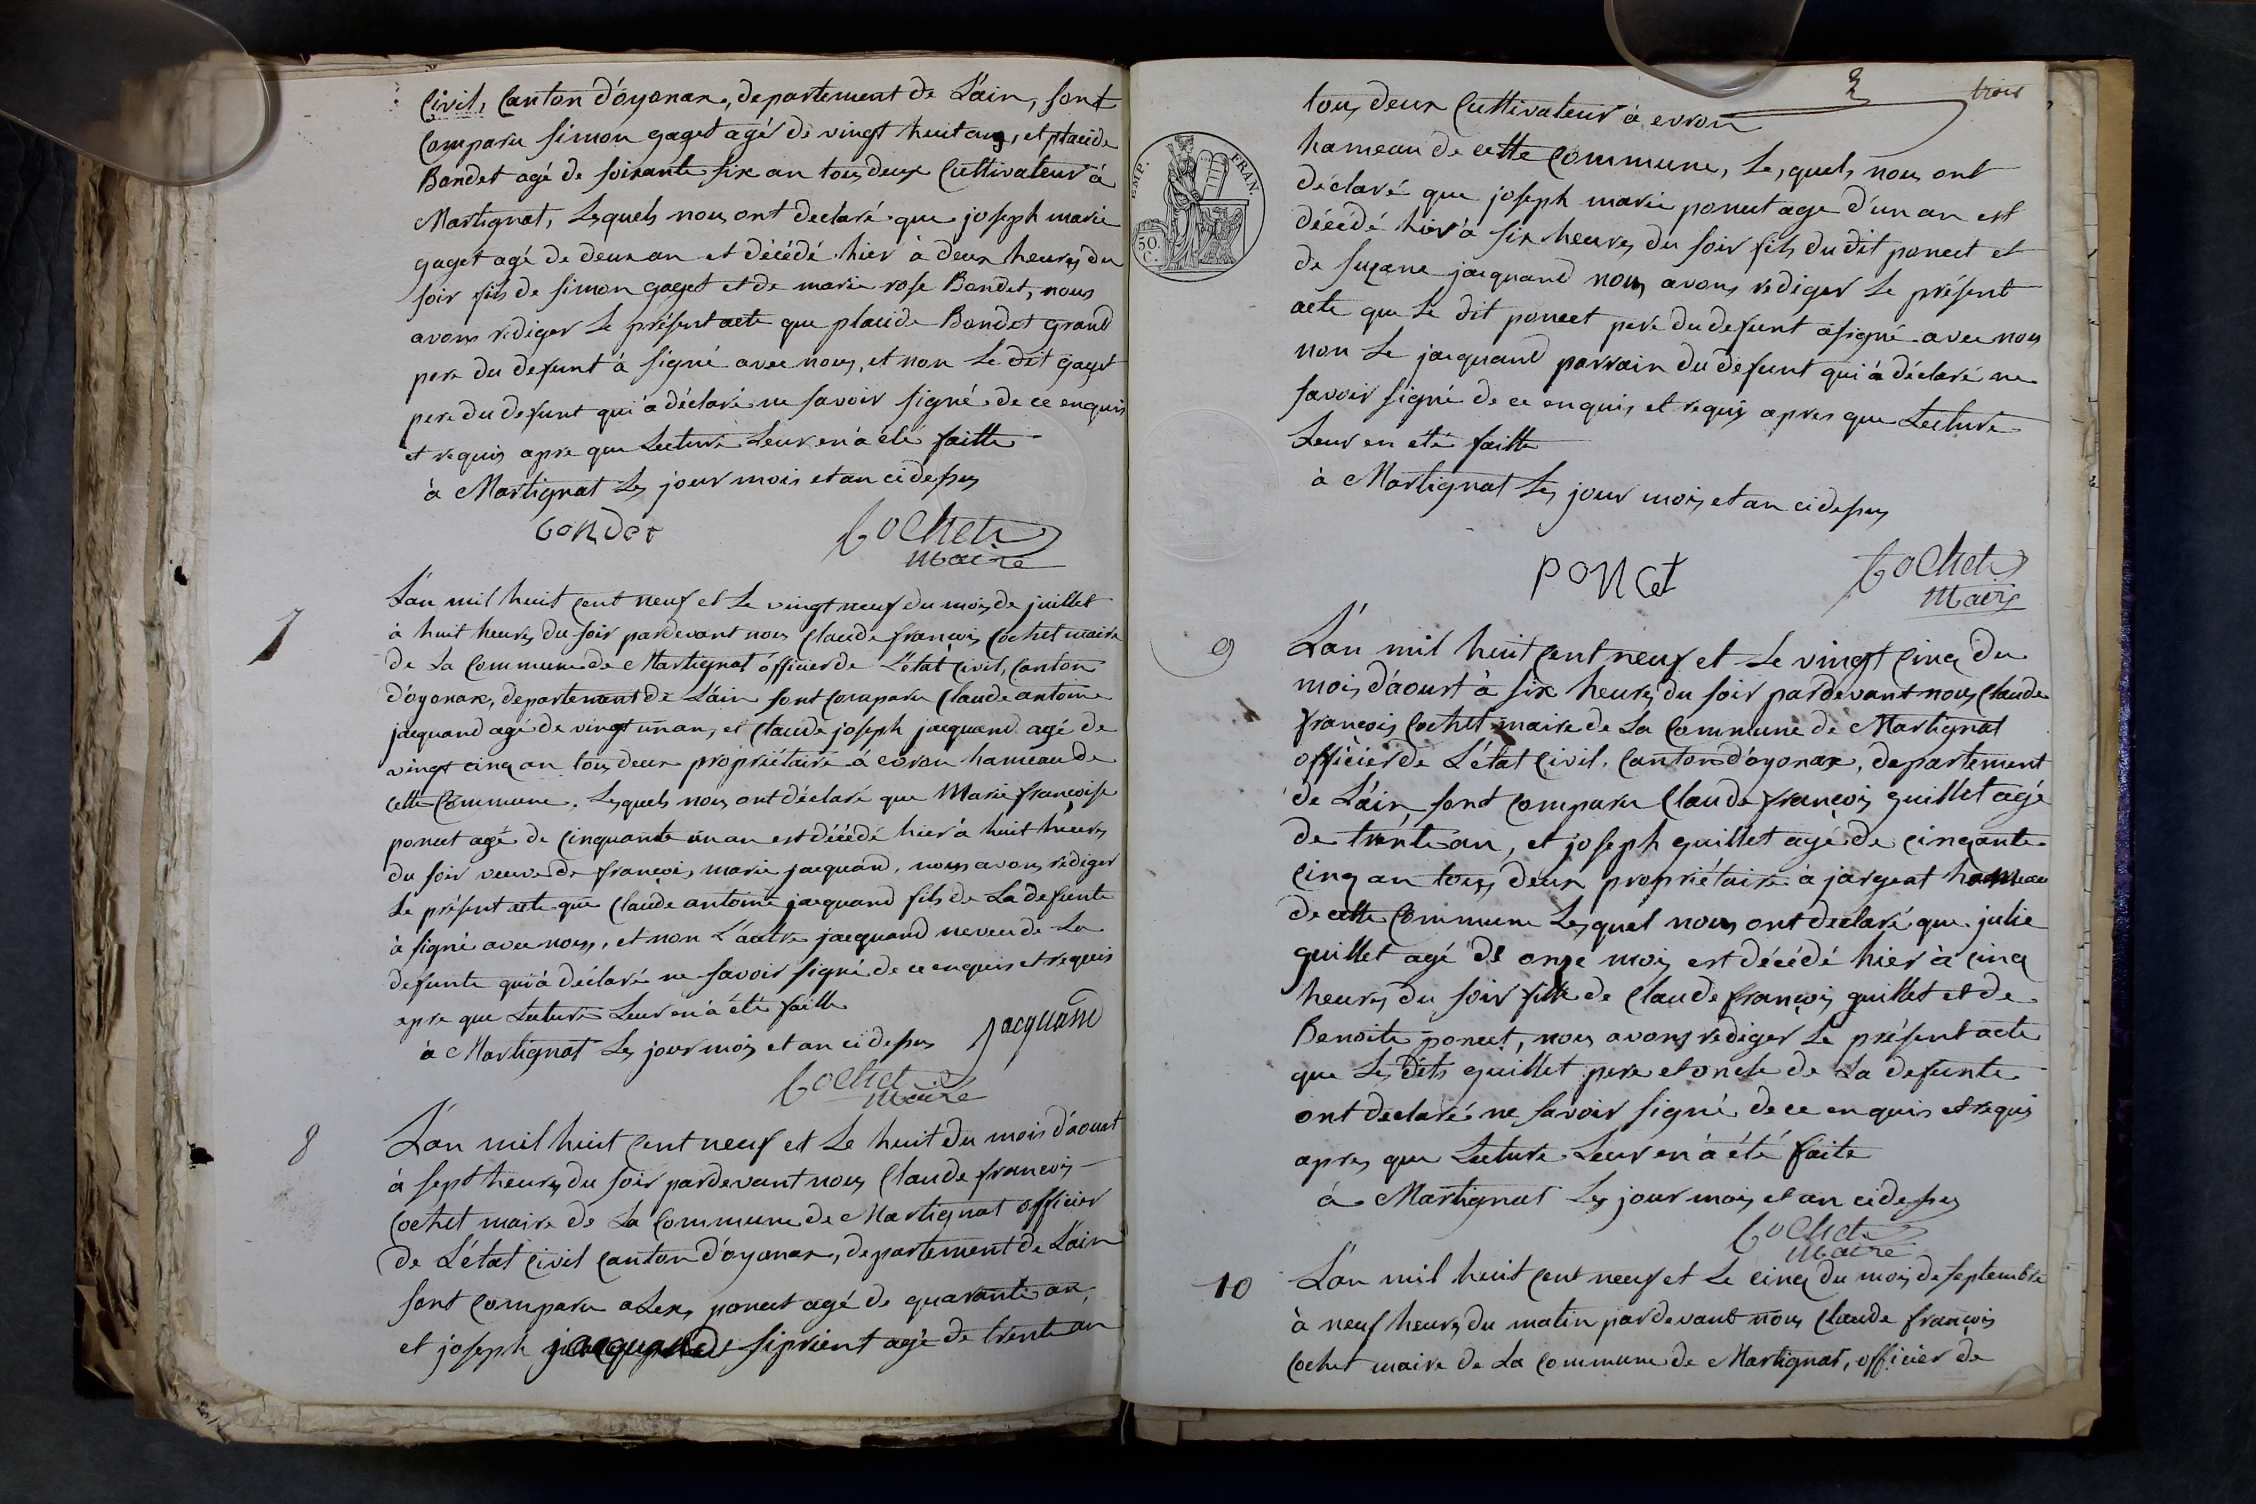 Civil, Canton d'oyonax, departement de L'ain, sont
Comparu simon gaget agé de vingt huit ans, et placide
Bondet agé de soixante six an tous deux Cultivateur à
Martignat, Lesquels nous ont declaré que joseph marie
gaget agé de deux an et décédé hier à deux heures du
soir fils de simon gaget et de marie rose Bondet, nous
avons rediger Le présent acte que placide Bondet grand
pere du defunt à signé avec nous, et non Le dit gaget
pere du defunt qui a déclaré ne savoir signé de ce enquis
et requis apre que Lecture Leur en à été faitte
à Martignat Les jour mois et an ci dessus
bondet
Cochet
maire
7
L'an mil huit cent neuf et Le vingt neuf du mois de juillet
à huit heures du soir pardevant nous Claude françois Cochet maire
de La Commune de Martignat officier de L'état Civil, Canton
d'oyonax, departement de L'ain sont comparu Claude antoine
jacquand agé de vingt un an, et Claude joseph jacquand agé de
vingt cinq an tous deux propriétaire à evron hameau de
cette Commune. Lesquels nous ont déclaré que Marie françoise
poncet agé de cinquante un an est décédé hier à huit heures
du soir veuve de françois marie jacquand, nous avons rediger
Le présent acte que Claude antoine jacquand fils de La defunte
à signé avec nous, et non L'autre jacquand neveu de La
defunte qui à déclaré ne savoir signé de ce enquis et requis
apre que Lecture Leur en à été faitte
à Martignat Les jour mois et an ci dessus
jacquand
Cochet
maire
8
L'an mil huit cent neuf et Le huit du mois d'aoust
à sept heures du soir pardevant nous Claude françois
Cochet maire de La Commune de Martignat officier
de L'état Civil Canton d'oyonax, departement de L'ain
sont Comparu alexs poncet agé de quarante an,
et joseph jacquand siprient agé de trente an
3
trois
tous deux Cultivateur à evron
hameau de cette Commune, Lesquels nous ont
déclaré que joseph marie poncet age d'un an est
décédé hier à six heures du soir fils du dit poncet et
de suzane jacquand nous avons rediger Le présent
acte que Le dit poncet pere du defunt a signé avec nous
non Le jacquand parrain du defunt qui à déclaré ne
savoir signé de ce enquis et requis apres que Lecture
Leur en été faitte
à Martignat Les jour mois et an ci dessus
EMP. FRAN.
50.
C.
poncet
Cochet
maire
9
L'an mil huit cent neuf et Le vingt cinq du
mois d'aoust à six heures du soir pardevant nous Claude
françois Cochet maire de La Commune de Martignat
officier de L'état Civil. Canton d'oyonax, departement
de L'ain, sont comparu Claude françois guillet agé
de trente an, et joseph guillet agé de cinqante
cinq an tous deux propriétaire à jargeat hameau
de cette Commune Lesquel nous ont declaré que julie
guillet agé de onze mois est décédé hier à cinq
heures du soir fille de Claude françois guillet et de
Benoite poncet, nous avons rediger Le présent acte
que Les dits guillet pere et oncle de La defunte
ont declaré ne savoir signé de ce enquis et requis
apres que Lecture Leur en à été faite
à Martignat Les jour mois et an ci dessus
Cochet
maire
10
L'an mil huit cent neuf et Le cinq du mois de septembre
à neuf heures du matin pardevant nous Claude françois
Cochet maire de La Commune de Martignat, officier de